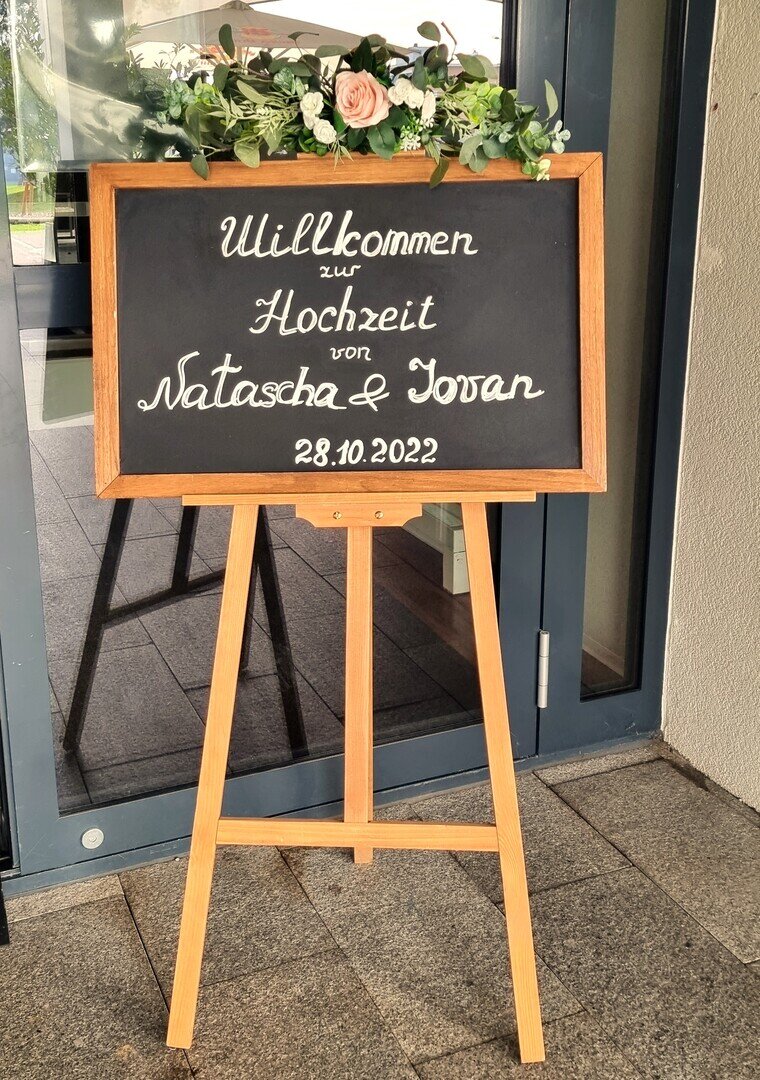 Willkommen
zur
Hochzeit
von
Natascha & Jovan
28.10.2022